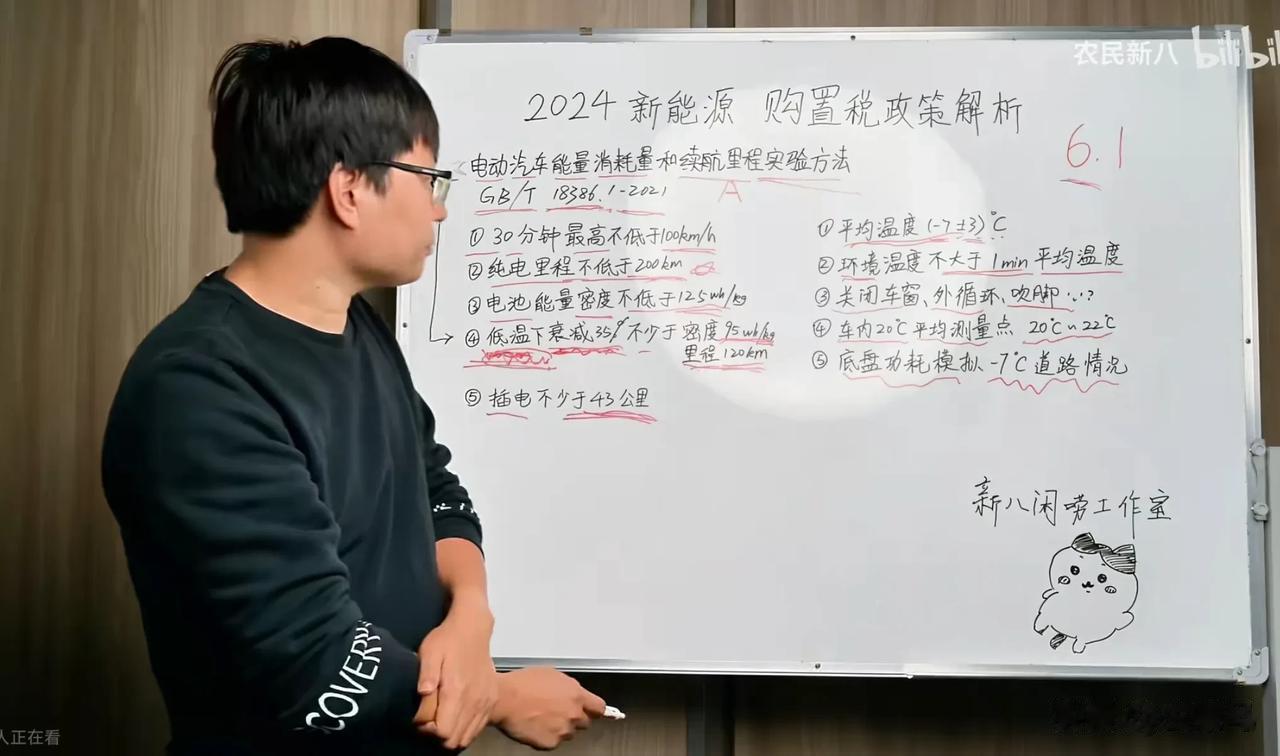 农民新八 bilibili
2024 新能源 购置税政策解析
6.1
电动汽车能量消耗量和续航里程实验方法
GB/T 18386.1-2021
A
① 30分钟最高不低于100km/h
② 纯电里程不低于200km
③ 电池能量密度不低于125wh/kg
④ 低温下衰减35% 不少于密度95wh/kg
里程120km
⑤ 插电不少于43公里
① 平均温度(-7±3)℃
② 环境温度不大于1min平均温度
③ 关闭车窗、外循环、吹脚…?
④ 车内20℃平均测量点 20℃~22℃
⑤ 底盘功耗模拟-7℃道路情况
新八闲唠工作室
COVERY
人正在看